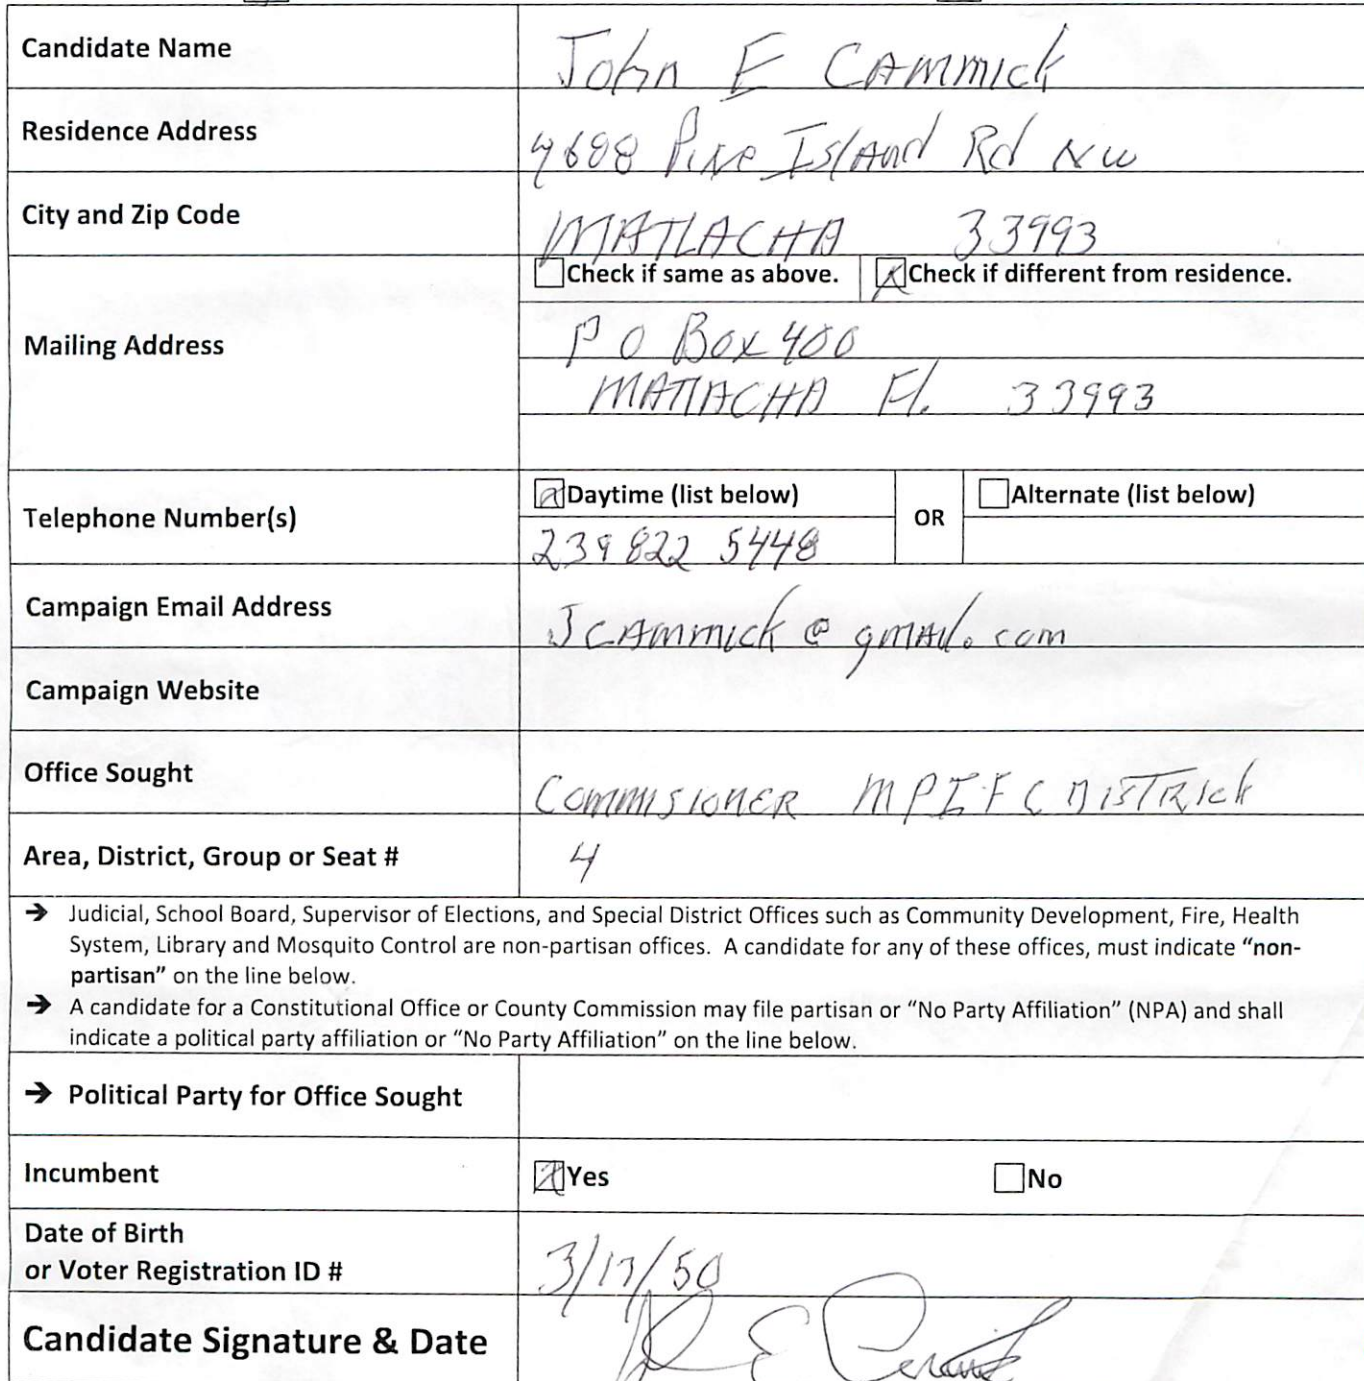 Candidate Name
John E CAMMICK
Residence Address
Pine Island Rd NW
City and Zip Code
MATLACHA 33993
Check if same as above. Check if different from residence.
Mailing Address
P O Box 400
MATLACHA Fl. 33993
Telephone Number(s)
Daytime (list below) OR Alternate (list below)
239 822 5448
Campaign Email Address
JCAMMICK@gmail.com
Campaign Website
Office Sought
COMMISIONER MPIFC DISTRICK
Area, District, Group or Seat #
4
→ Judicial, School Board, Supervisor of Elections, and Special District Offices such as Community Development, Fire, Health
System, Library and Mosquito Control are non-partisan offices. A candidate for any of these offices, must indicate “non-
partisan” on the line below.
→ A candidate for a Constitutional Office or County Commission may file partisan or “No Party Affiliation” (NPA) and shall
indicate a political party affiliation or “No Party Affiliation” on the line below.
→ Political Party for Office Sought
Incumbent
Yes No
Date of Birth
or Voter Registration ID #
3/17/50
Candidate Signature & Date